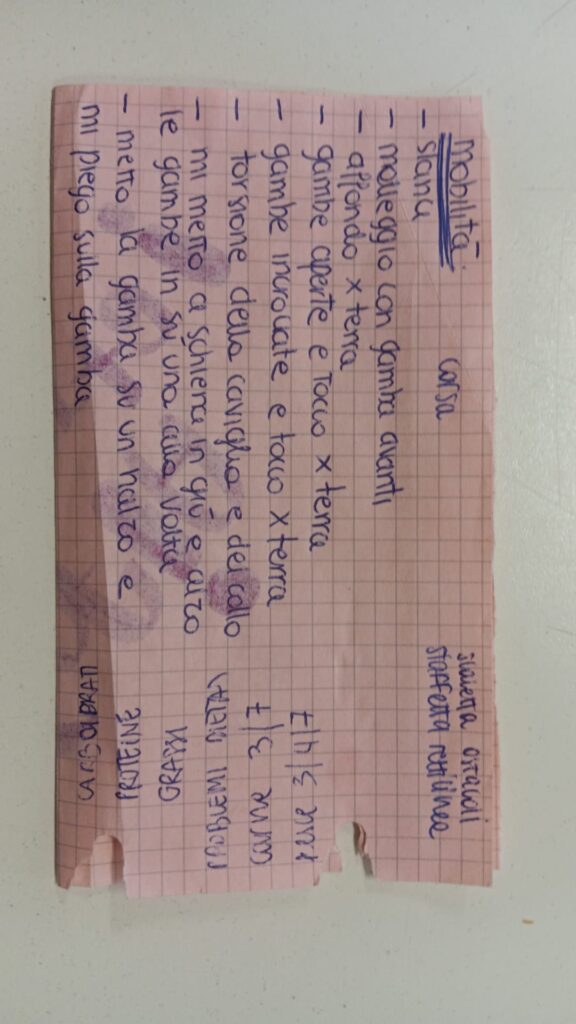 mobilità.
- slanci
corsa
ostacoli
staffetta rettilinea
- molleggio con gamba avanti
- affondo x terra
- gambe aperte e tocco x terra
- gambe incrociate e tocco x terra
- torsione della caviglia e del collo
- mi metto a schiena in giù e alzo
le gambe in sù una alla volta
- metto la gamba su un rialzo e
mi piego sulla gamba
CARBOIDRATI
PROTEINE
GRASSI
carne 3/7
3/4/7